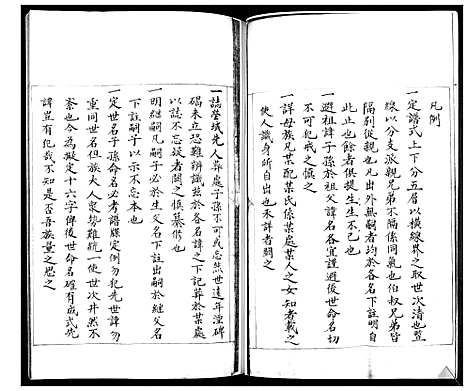 凡例
一定譜式上下分五層以橫線界之取世次清也豎
線以分支派親兄弟不隔係同氣也伯叔兄弟皆
隔別從親也以出外無嗣者均於各名下註明自
此止也餘者俱提生生不已也
一避祖諱子孫於祖父諱名各宜謹避後世命名切
不可犯戒之慎之
一詳母族凡某配某氏係某處某人之女知者載之
使人識身所自出也未詳者闕之
一誌塋域先人葬處子孫不可或忘然世遠年湮碑
碣未立恐難辨識茲於各名諱之下記葬於某處
以誌不忘疑者闕之慎纂也
一明繼嗣凡嗣子必於生父名下註出嗣於繼父名
下註嗣子以示不忘本也
一定世名子孫命名必考譜牒定例勿犯先世諱勿
重同世名但族大人衆勢難統一使世次井然不
紊也今為擬定十六字俾後世命名確有成式先
諱豈有犯哉不知是否吾族量之思之